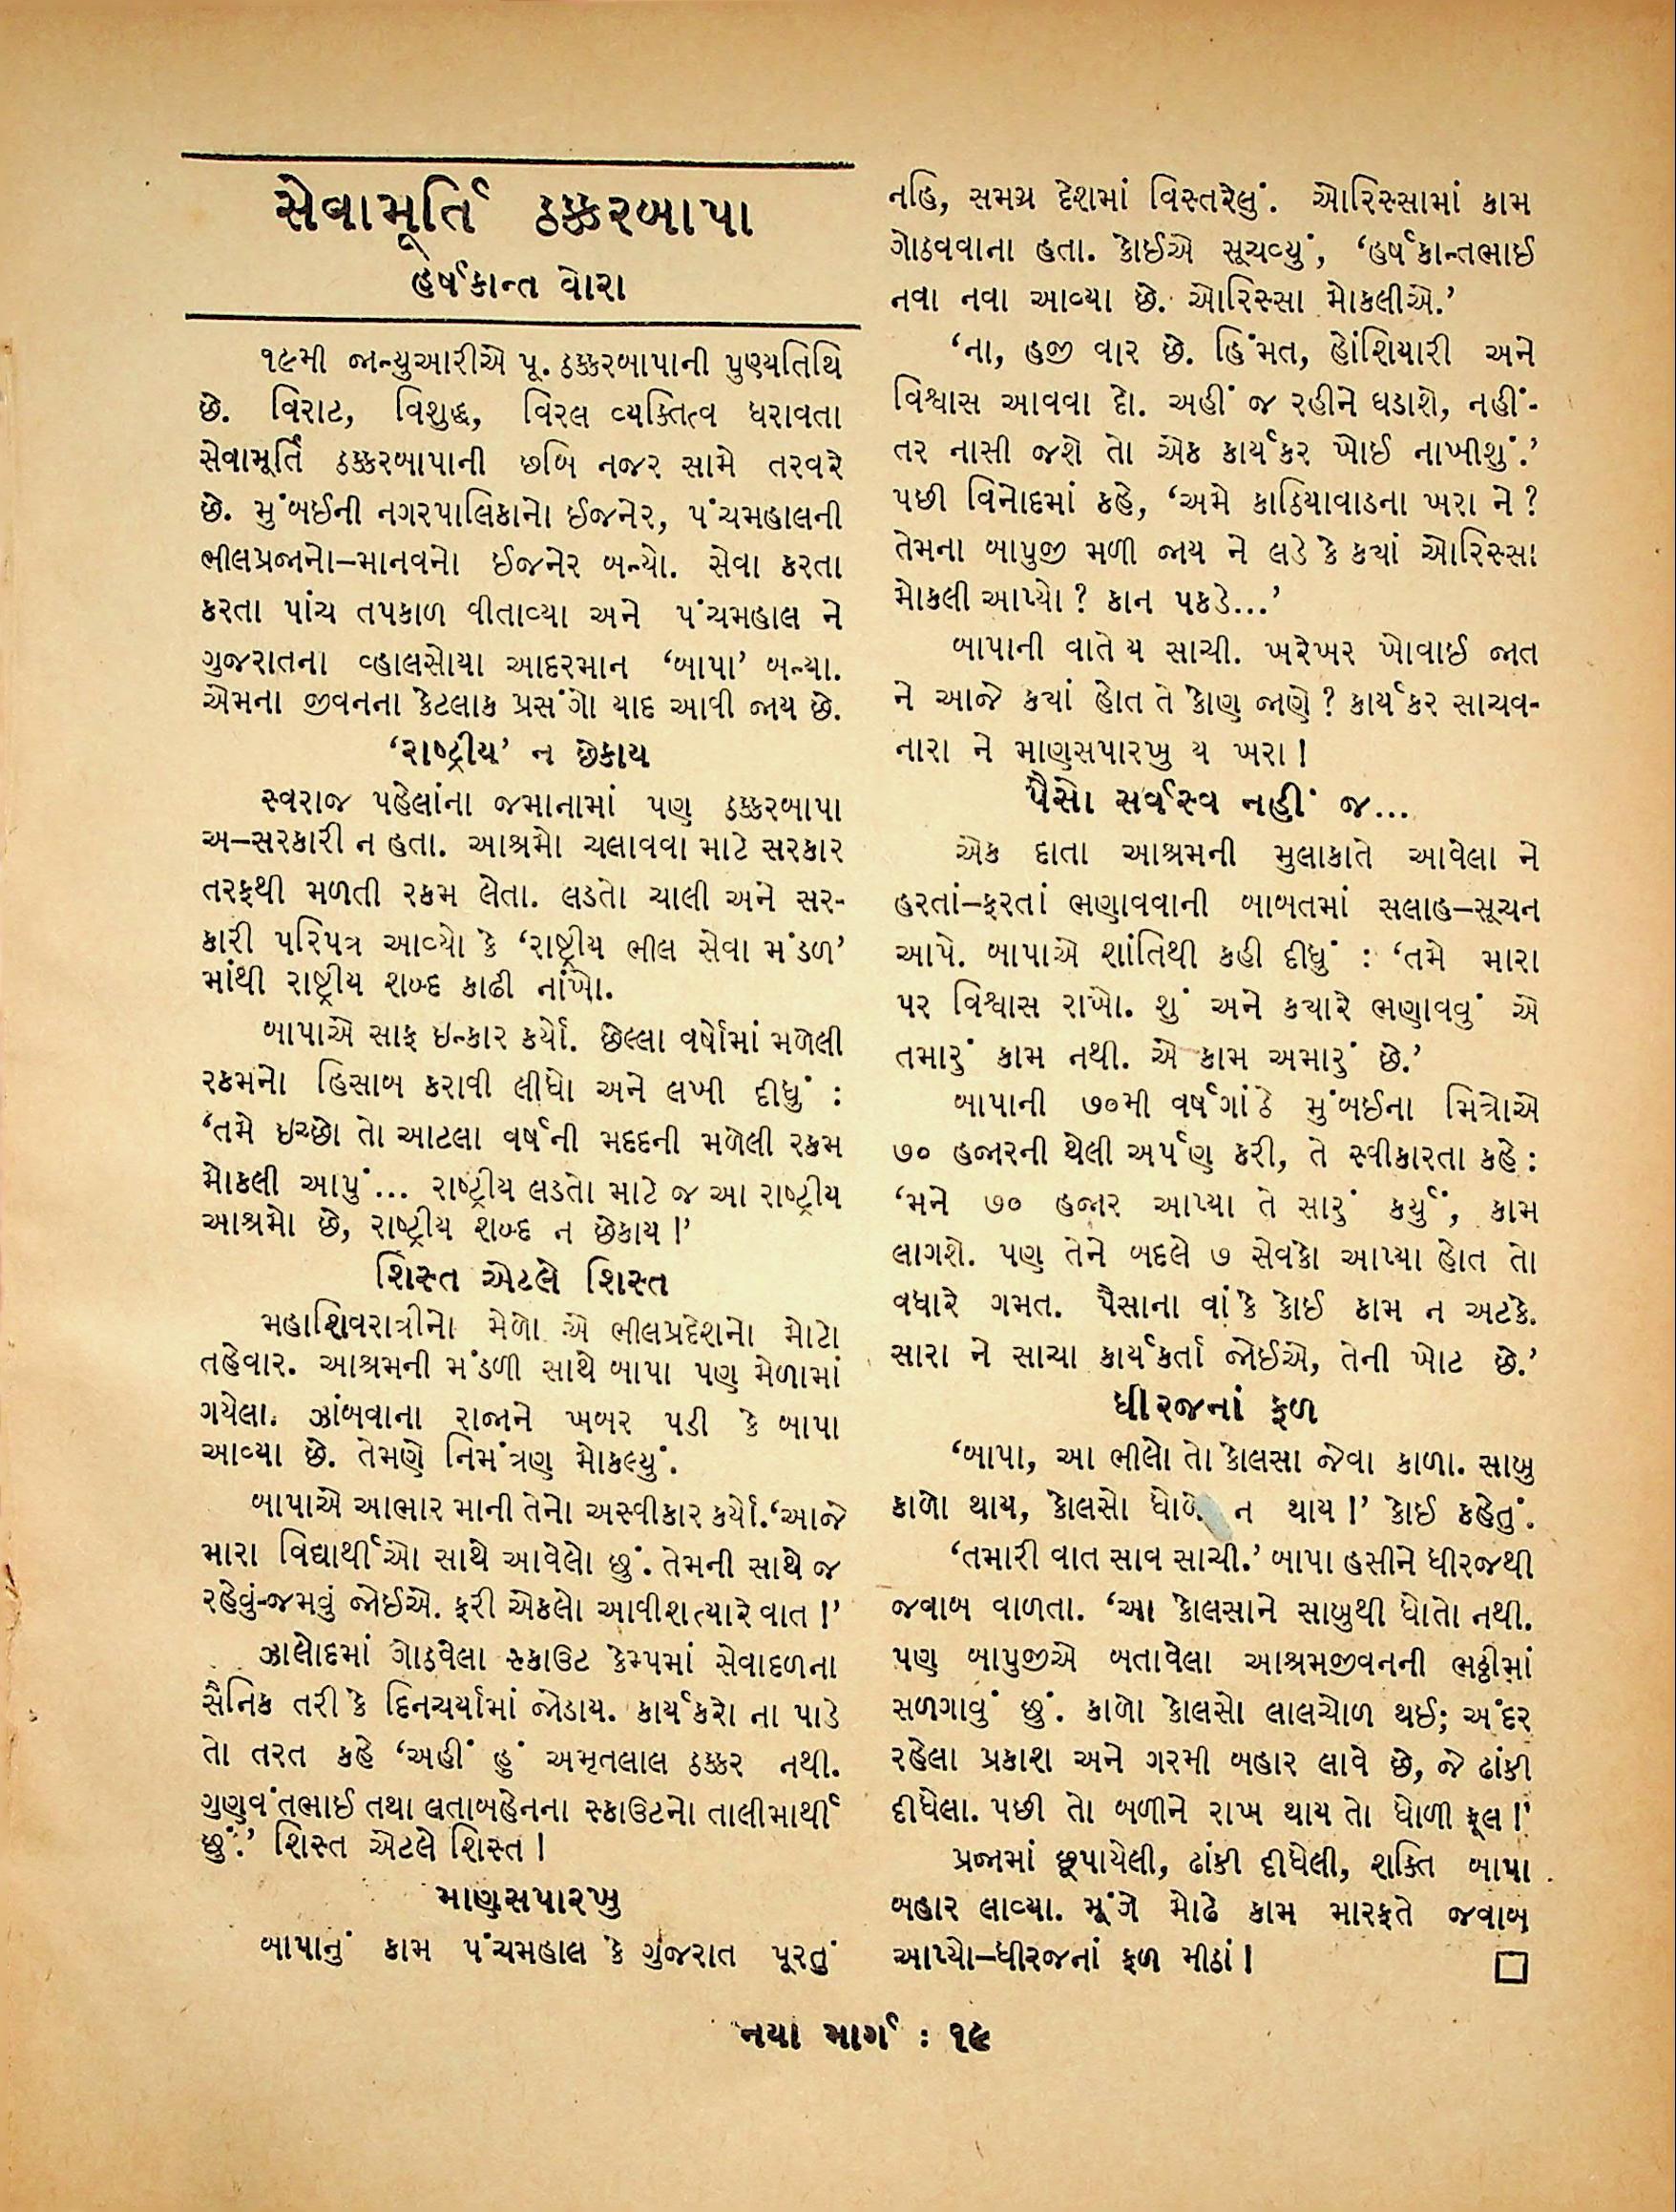 સેવામૂર્તિ ઠક્કરબાપા
હર્ષકાન્ત વોરા
૧૯મી જાન્યુઆરીએ પૂ. ઠક્કરબાપાની પુણ્યતિથિ
છે. વિરાટ, વિશુદ્ધ, વિરલ વ્યક્તિત્વ ધરાવતા
સેવામૂર્તિ ઠક્કરબાપાની છબિ નજર સામે તરવરે
છે. મુંબઈની નગરપાલિકાનો ઈજનેર, પંચમહાલની
ભીલપ્રજાનો–માનવનો ઈજનેર બન્યો. સેવા કરતા
કરતા પાંચ તપકાળ વીતાવ્યા અને પંચમહાલ ને
ગુજરાતના વ્હાલસોયા આદરમાન ‘બાપા’ બન્યા.
એમના જીવનના કેટલાક પ્રસંગો યાદ આવી જાય છે.
‘રાષ્ટ્રીય’ ન છેકાય
સ્વરાજ પહેલાંના જમાનામાં પણ ઠક્કરબાપા
અ–સરકારી ન હતા. આશ્રમો ચલાવવા માટે સરકાર
તરફથી મળતી રકમ લેતા. લડતો ચાલી અને સર-
કારી પરિપત્ર આવ્યો કે ‘રાષ્ટ્રીય ભીલ સેવા મંડળ’
માંથી રાષ્ટ્રીય શબ્દ કાઢી નાંખો.
બાપાએ સાફ ઇન્કાર કર્યો. છેલ્લા વર્ષોમાં મળેલી
રકમનો હિસાબ કરાવી લીધો અને લખી દીધું :
‘તમે ઇચ્છો તો આટલા વર્ષની મદદની મળેલી રકમ
મોકલી આપું... રાષ્ટ્રીય લડતો માટે જ આ રાષ્ટ્રીય
આશ્રમો છે, રાષ્ટ્રીય શબ્દ ન છેકાય !’
શિસ્ત એટલે શિસ્ત
મહાશિવરાત્રીનો મેળો એ ભીલપ્રદેશનો મોટો
તહેવાર. આશ્રમની મંડળી સાથે બાપા પણ મેળામાં
ગયેલા. ઝાંબવાના રાજાને ખબર પડી કે બાપા
આવ્યા છે. તેમણે નિમંત્રણ મોકલ્યું.
બાપાએ આભાર માની તેનો અસ્વીકાર કર્યો.‘આજે
મારા વિદ્યાર્થીઓ સાથે આવેલો છું. તેમની સાથે જ
રહેવું-જમવું જોઈએ. ફરી એકલો આવીશ ત્યારે વાત !’
ઝાલોદમાં ગોઠવેલા સ્કાઉટ કેમ્પમાં સેવાદળના
સૈનિક તરીકે દિનચર્યામાં જોડાય. કાર્યકરો ના પાડે
તો તરત કહે ‘અહીં હું અમૃતલાલ ઠક્કર નથી.
ગુણવંતભાઈ તથા લતાબહેનના સ્કાઉટનો તાલીમાર્થી
છું.’ શિસ્ત એટલે શિસ્ત !
માણસપારખુ
બાપાનું કામ પંચમહાલ કે ગુજરાત પૂરતું
નહિ, સમગ્ર દેશમાં વિસ્તરેલું. ઓરિસ્સામાં કામ
ગોઠવવાના હતા. કોઈએ સૂચવ્યું, ‘હર્ષકાન્તભાઈ
નવા નવા આવ્યા છે. ઓરિસ્સા મોકલીએ.’
‘ના, હજી વાર છે. હિંમત, હોંશિયારી અને
વિશ્વાસ આવવા દો. અહીં જ રહીને ઘડાશે, નહીં-
તર નાસી જશે તો એક કાર્યકર ખોઈ નાખીશું.’
પછી વિનોદમાં કહે, ‘અમે કાઠિયાવાડના ખરા ને ?
તેમના બાપુજી મળી જાય ને લડે કે ક્યાં ઓરિસ્સા
મોકલી આપ્યો ? કાન પકડે...’
બાપાની વાતે ય સાચી. ખરેખર ખોવાઈ જાત
ને આજે ક્યાં હોત તે કોણ જાણે ? કાર્યકર સાચવ-
નારા ને માણસપારખુ ય ખરા !
પૈસો સર્વસ્વ નહીં જ...
એક દાતા આશ્રમની મુલાકાતે આવેલા ને
હરતાં–ફરતાં ભણાવવાની બાબતમાં સલાહ–સૂચન
આપે. બાપાએ શાંતિથી કહી દીધું : ‘તમે મારા
પર વિશ્વાસ રાખો. શું અને ક્યારે ભણાવવું એ
તમારું કામ નથી. એ કામ અમારું છે.’
બાપાની ૭૦મી વર્ષગાંઠે મુંબઈના મિત્રોએ
૭૦ હજારની થેલી અર્પણ કરી, તે સ્વીકારતા કહે :
‘મને ૭૦ હજાર આપ્યા તે સારું કર્યું, કામ
લાગશે. પણ તેને બદલે ૭ સેવકો આપ્યા હોત તો
વધારે ગમત. પૈસાના વાંકે કોઈ કામ ન અટકે.
સારા ને સાચા કાર્યકર્તા જોઈએ, તેની ખોટ છે.’
ધીરજનાં ફળ
‘બાપા, આ ભીલો તો કોલસા જેવા કાળા. સાબુ
કાળો થાય, કોલસો ધોળો ન થાય !’ કોઈ કહેતું.
‘તમારી વાત સાવ સાચી.’ બાપા હસીને ધીરજથી
જવાબ વાળતા. ‘આ કોલસાને સાબુથી ધોતો નથી.
પણ બાપુજીએ બતાવેલા આશ્રમજીવનની ભઠ્ઠીમાં
સળગાવું છું. કાળો કોલસો લાલચોળ થઈ; અંદર
રહેલા પ્રકાશ અને ગરમી બહાર લાવે છે, જે ઢાંકી
દીધેલા. પછી તો બળીને રાખ થાય તો ધોળી ફૂલ !’
પ્રજામાં છૂપાયેલી, ઢાંકી દીધેલી, શક્તિ બાપા
બહાર લાવ્યા. મૂંગે મોઢે કામ મારફતે જવાબ
આપ્યો–ધીરજનાં ફળ મીઠાં !
નયા માર્ગ : ૧૯